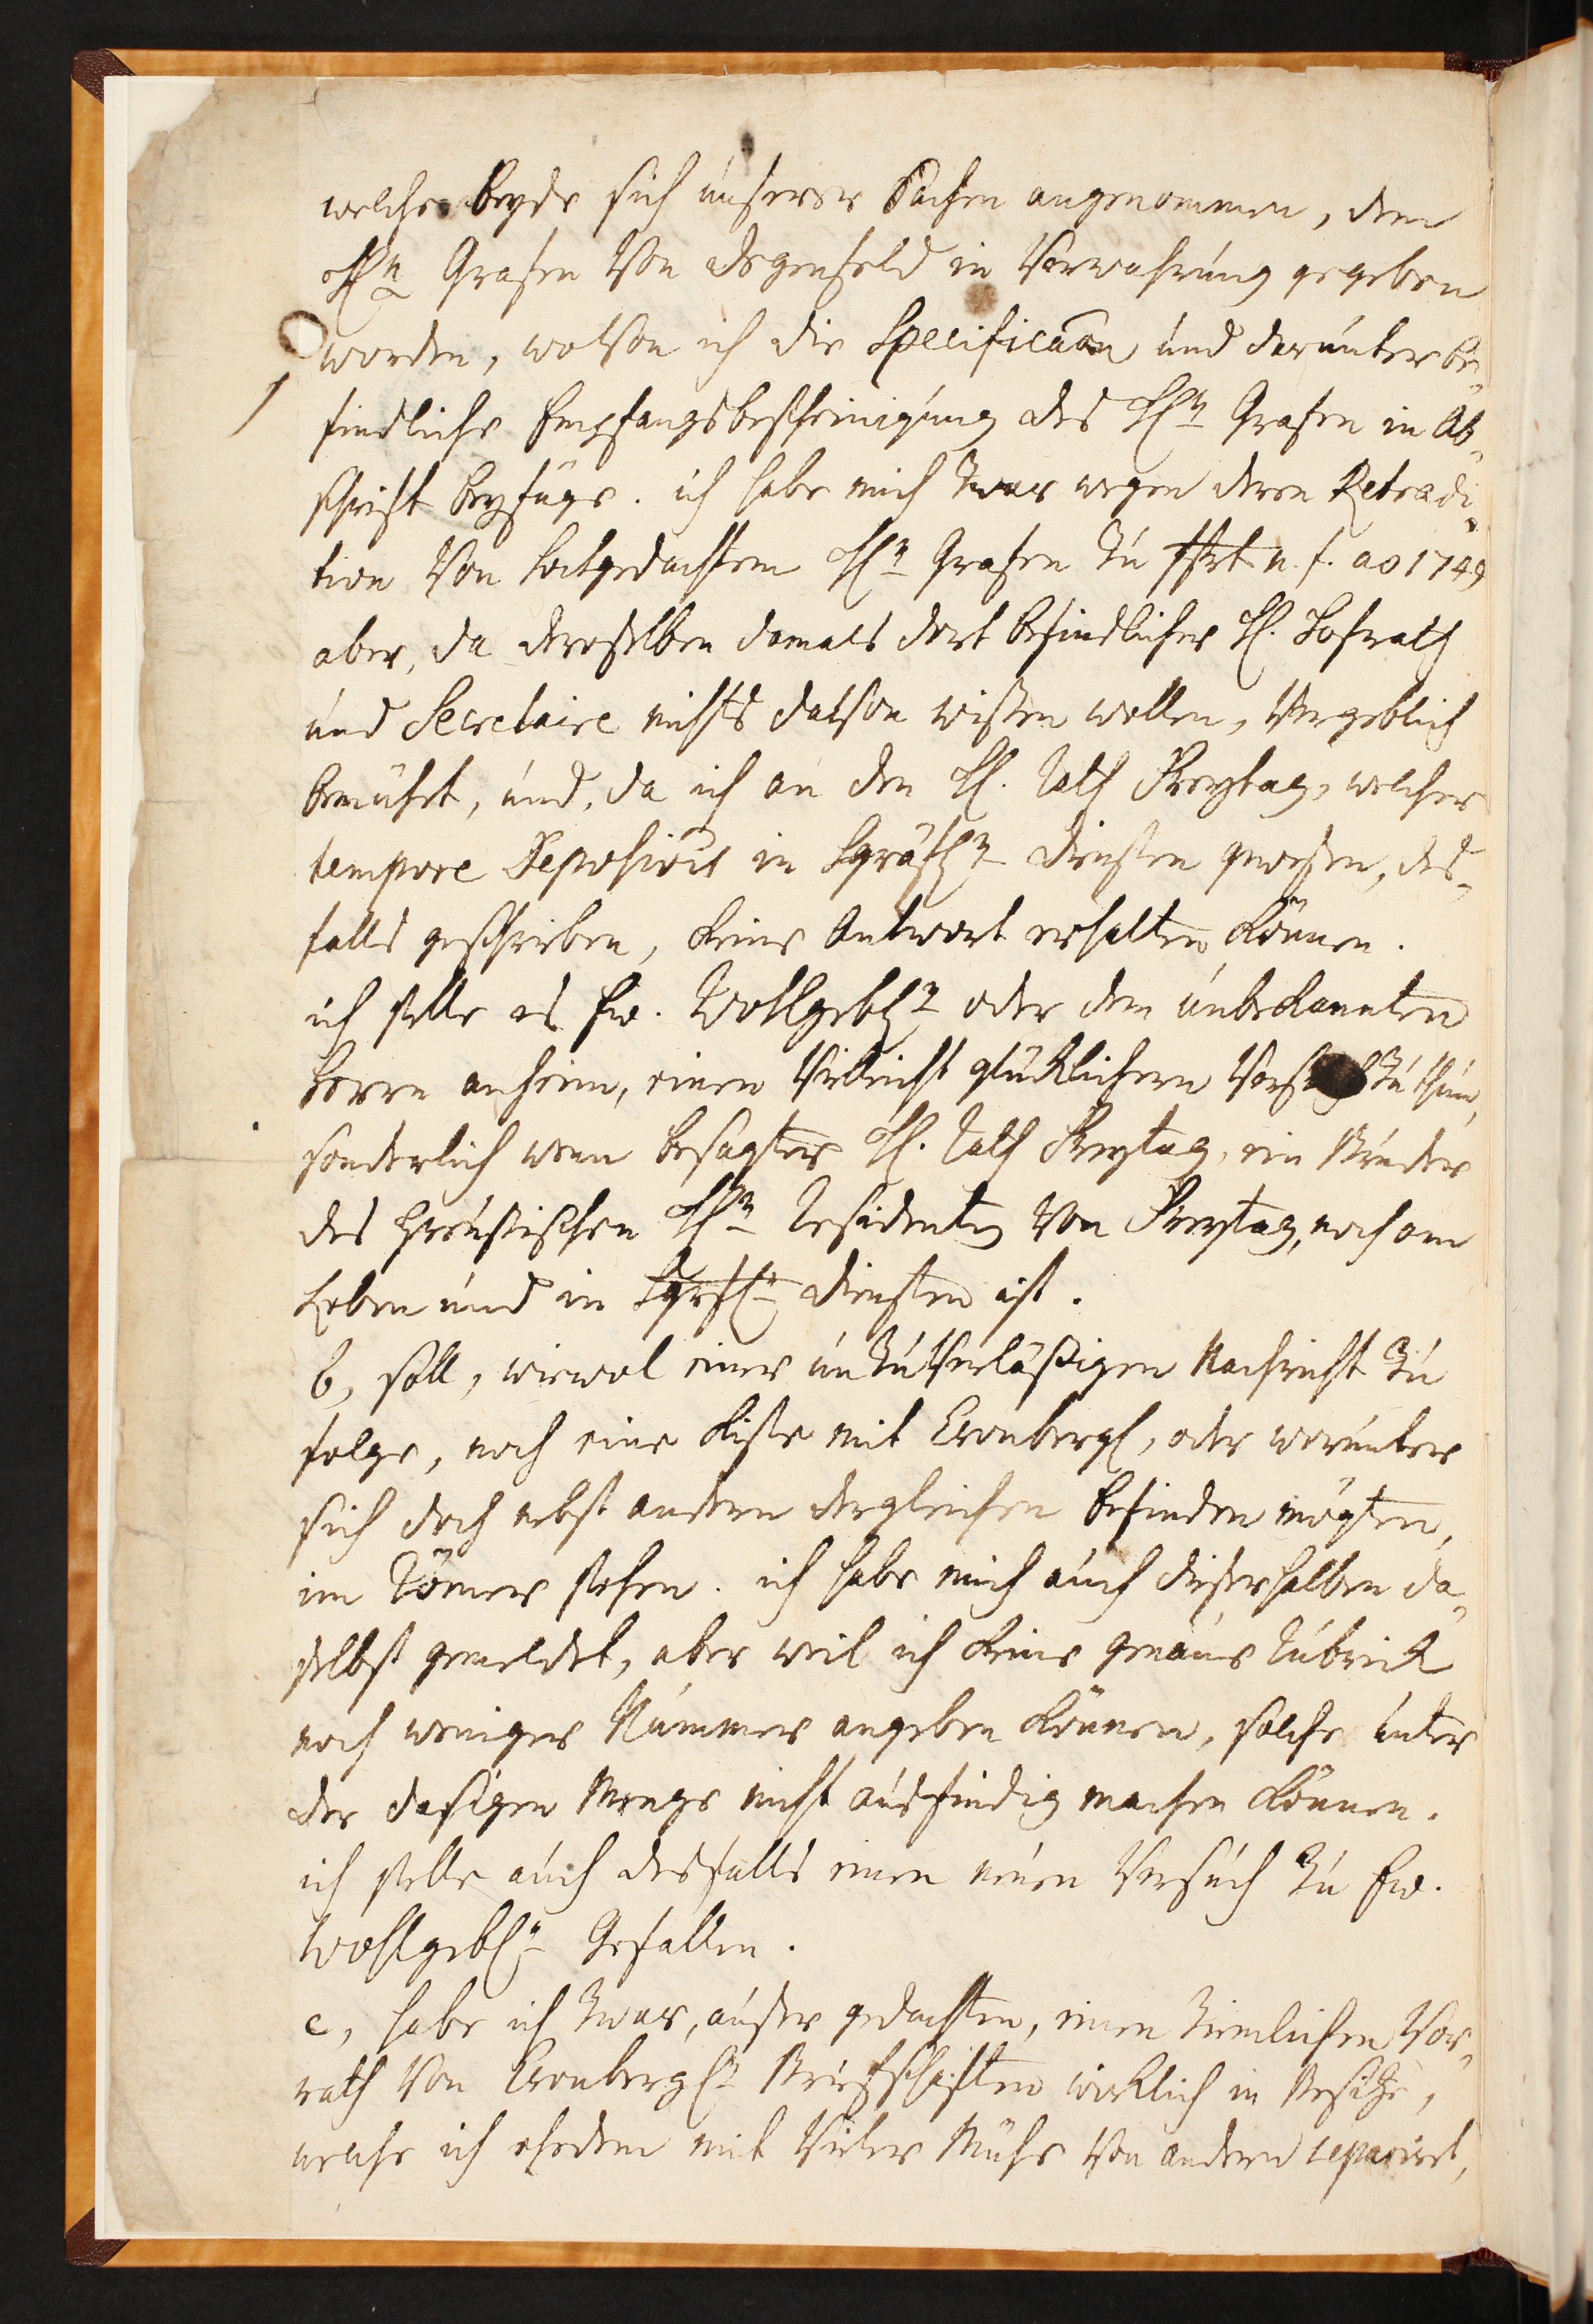 welche beyde sich unserer Sachen angenommen, dem
HEn Grafen von Degenfeld in Verwahrung gegeben
worden, wovon ich die Specificaon und darunter be-
findliche Empfangsbescheinigung des HEn Grafen in Ab-
schrift beyfüge. ich habe mich zwar wegen deren Retradi-
tion von hochgedachtem HEn Grafen zu Ffrt n. f. ao 1749
aber, da deroselben damals dort befindlicher H. Hofrath
und Secretaire nichts davon wißen wollen, vergeblich
bemühet, und, da ich an den H. Rath Freytag, welcher
tempore Deposiois in hgräfl. Diensten gewesen, des-
falls geschrieben, keine Antwort erhalten können.
ich stelle es Ew. Wohlgebn oder dem unbekannten
Herrn anheim, einen vielleicht glüklichern Versuch zu thun,
sonderlich wenn besagter H. Rath Freytag, ein Bruder
des Preußischen HEn Residenten von Freytag, noch am
Leben und in hgrfln Diensten ist.
b, soll, wiewol einer unzuverläßigen Nachricht zu
folge, noch eine Kiste mit Cronbergl, oder worunter
sich doch nebst andern dergleichen befinden mögten,
im Römer stehen. ich habe mich auch dieserhalben da-
selbst gemeldet, aber weil ich keine genaue Rubrick
noch weniger Nummer angeben können, solche unter
der dasigen Menge nicht ausfindig machen können.
ich stelle auch desfalls einen neuen Versuch zu Ew.
Wohlgebn Gefallen.
c, habe ich zwar, außer gedachten, einen ziemlichen Vor-
rath von Cronbergln Briefschaften wirklich in Besitze,
welche ich ehedem mit vieler Mühe von andern separiret,